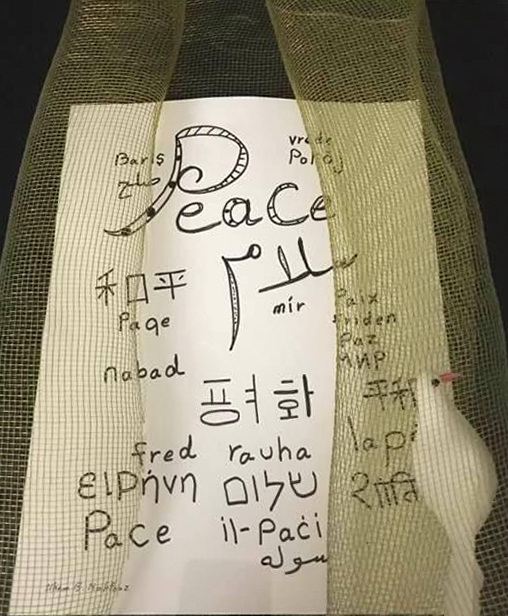 Barış
صلح
vrede
Pokój
Peace
سلام
和平
Paqe
mir
Paix
friden
Paz
МИР
nabad
평화
平和
fred rauha
ειρήνη שלום
Pace il-Paċi
سوله